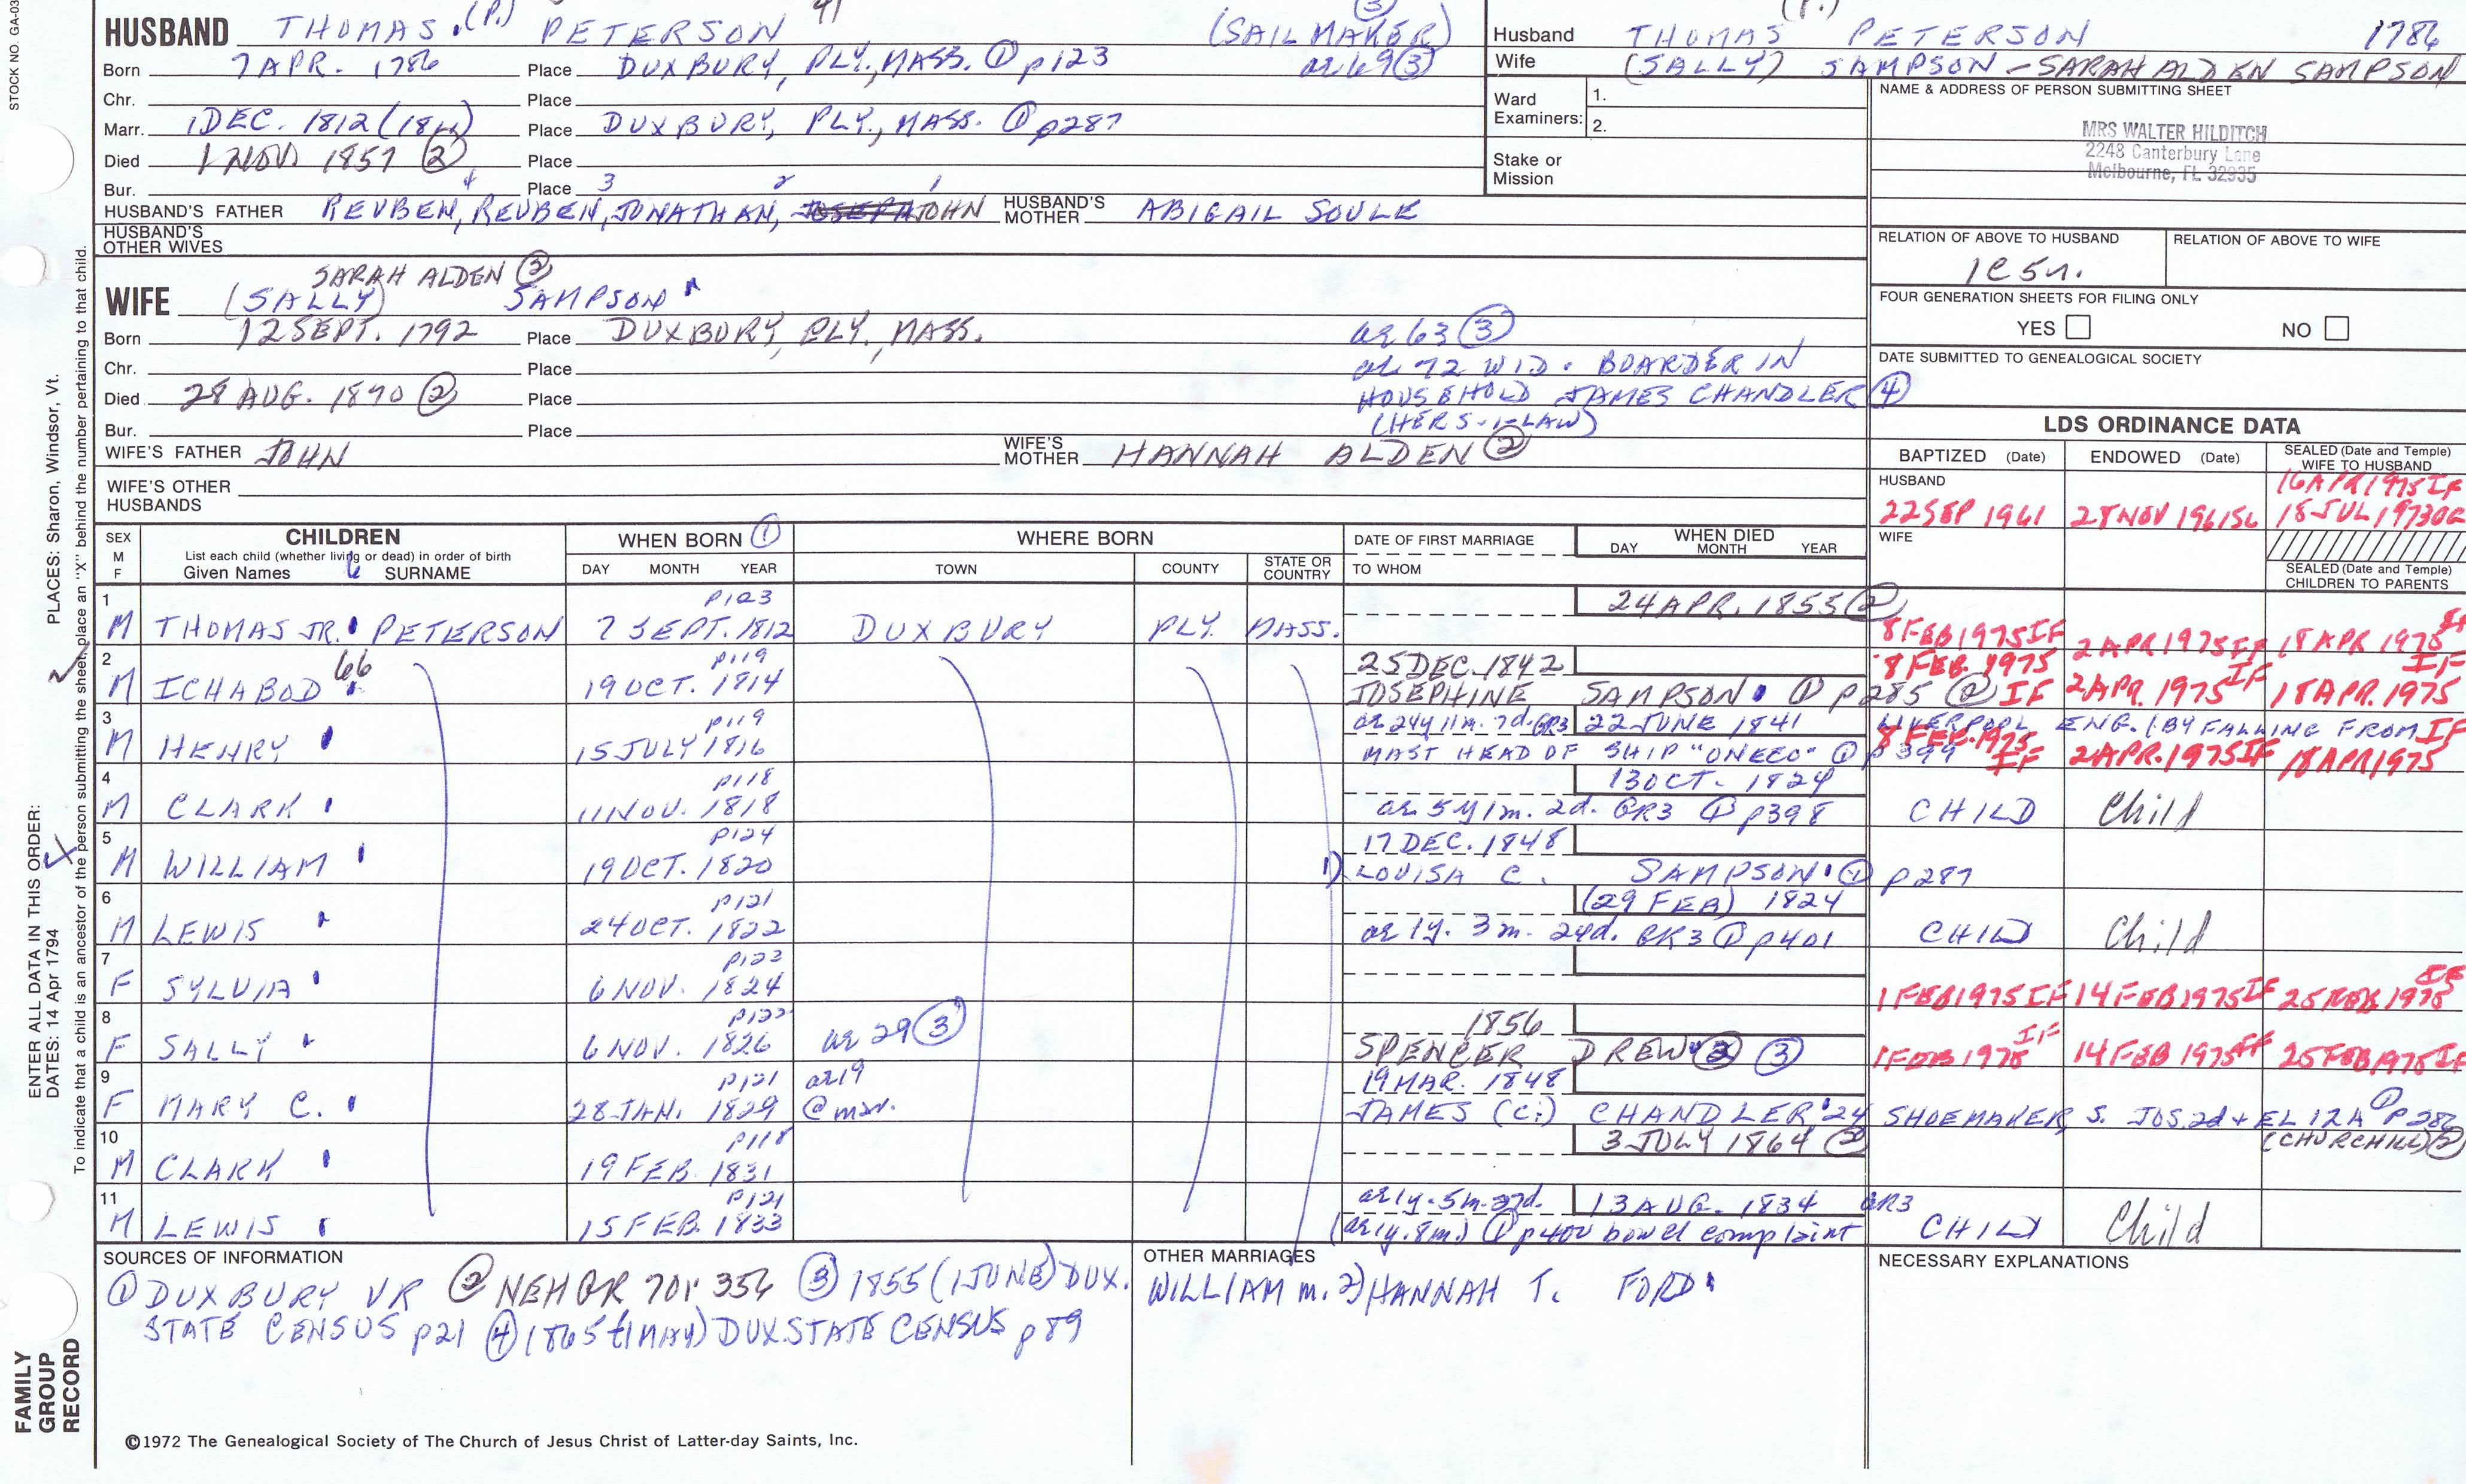 STOCK NO. GA-03
HUSBAND THOMAS (P.) PETERSON (SAILMAKER) ③
Born 7 APR. 1786 Place DUXBURY, PLY., MASS. ① p123 ae 69 ③
Chr. Place
Marr. 1 DEC. 1812 Place DUXBURY, PLY., MASS. ① p287
Died NOV 1857 ② Place
Bur. Place
4 3 2 1
HUSBAND'S FATHER REUBEN, REUBEN, JONATHAN, JOHN HUSBAND'S MOTHER ABIGAIL SOULE
HUSBAND'S OTHER WIVES
SARAH ALDEN ②
WIFE (SALLY) SAMPSON
Born 12 SEPT. 1792 Place DUXBURY, PLY., MASS. ae 63 ③
Chr. Place ae 72 WID. BOARDER IN
Died 28 AUG. 1890 ② Place HOUSEHOLD JAMES CHANDLER ④
Bur. Place (HER S-I-LAW)
WIFE'S FATHER JOHN WIFE'S MOTHER HANNAH ALDEN ②
WIFE'S OTHER HUSBANDS
Husband THOMAS (P.) PETERSON 1786
Wife (SALLY) SAMPSON - SARAH ALDEN SAMPSON
Ward Examiners: 1.
2.
Stake or Mission
NAME & ADDRESS OF PERSON SUBMITTING SHEET
MRS WALTER HILDITCH
2248 Canterbury Lane
Melbourne, FL 32935
RELATION OF ABOVE TO HUSBAND RELATION OF ABOVE TO WIFE
1C5r.
FOUR GENERATION SHEETS FOR FILING ONLY
YES NO
DATE SUBMITTED TO GENEALOGICAL SOCIETY
LDS ORDINANCE DATA
BAPTIZED (Date) ENDOWED (Date) SEALED (Date and Temple) WIFE TO HUSBAND
HUSBAND 16 APR 1975 IF
22 SEP 1961 28 NOV 1961 SL 18 JUL 1973 OG
WIFE
SEALED (Date and Temple) CHILDREN TO PARENTS
SEX M F CHILDREN WHEN BORN ① WHERE BORN DATE OF FIRST MARRIAGE WHEN DIED
List each child (whether living or dead) in order of birth
Given Names SURNAME DAY MONTH YEAR TOWN COUNTY STATE OR COUNTRY TO WHOM DAY MONTH YEAR
1 p123 24 APR. 1855 ②
M THOMAS JR. PETERSON 7 SEPT. 1812 DUXBURY PLY. MASS. 8 FEB 1975 IF 2 APR 1975 IF 18 APR 1975 IF
2 66 p119 25 DEC. 1842 8 FEB. 1975
M ICHABOD 19 OCT. 1814 JOSEPHINE SAMPSON ① p285 ② IF 2 APR. 1975 IF 18 APR. 1975 IF
3 p119 ae 24y 11m. 7d. GR3 22 JUNE 1841 LIVERPOOL ENG. (BY FALLING FROM
M HENRY 15 JULY 1816 MAST HEAD OF SHIP "ONECO" ① p399 8 FEB. 1975 IF 2 APR. 1975 IF 18 APR 1975 IF
4 p118 13 OCT. 1824
M CLARK 11 NOV. 1818 ae 5y 1m. 2d. GR3 ① p398 CHILD Child
5 p124 17 DEC. 1848
M WILLIAM 19 OCT. 1820 1) LOUISA C. SAMPSON ① p287
6 p121 (29 FEB) 1824
M LEWIS 24 OCT. 1822 ae 1y. 3m. 24d. GR3 ① p401 CHILD Child
7 p123
F SYLVIA 6 NOV. 1824 1 FEB 1975 IF 14 FEB 1975 IF 25 FEB 1975 IF
8 p122 ae 29 ③ 1856
F SALLY 6 NOV. 1826 SPENCER DREW ② ③ 1 FEB 1975 IF 14 FEB 1975 IF 25 FEB 1975 IF
9 p121 ae 19 19 MAR. 1848
F MARY C. 28 JAN. 1829 @ mar. JAMES (C.) CHANDLER '24 SHOEMAKER, S. JOS. 2d + ELIZA ① p286
(CHURCHILL) ②
10 p118 3 JULY 1864 ②
M CLARK 19 FEB. 1831
11 p121 ae 1y. 5m. 27d. 13 AUG. 1834 GR3
M LEWIS 15 FEB. 1833 (ae 1y. 8m.) ① p400 bowel complaint CHILD Child
SOURCES OF INFORMATION
① DUXBURY VR ② NEHGR 70: 356 ③ 1855 (1 JUNE) DUX.
STATE CENSUS p21 ④ (1865 (1 MAY) DUX STATE CENSUS p89
OTHER MARRIAGES
WILLIAM m. 2) HANNAH T. FORD
NECESSARY EXPLANATIONS
©1972 The Genealogical Society of The Church of Jesus Christ of Latter-day Saints, Inc.
FAMILY GROUP RECORD
ENTER ALL DATA IN THIS ORDER:
DATES: 14 Apr 1794 PLACES: Sharon, Windsor, Vt.
To indicate that a child is an ancestor of the person submitting the sheet, place an "X" behind the number pertaining to that child.